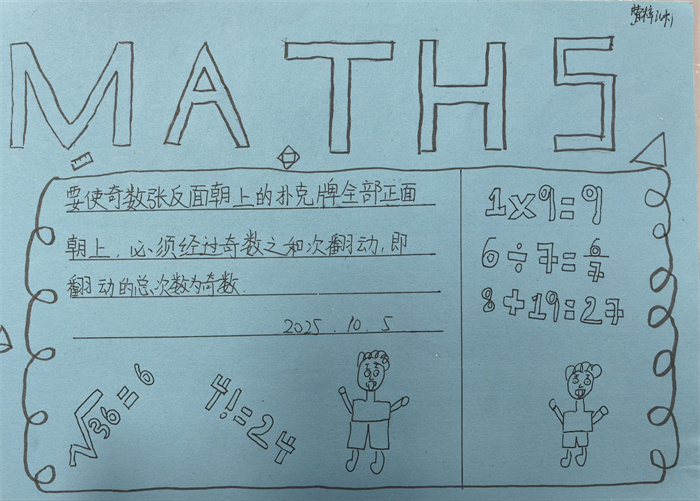 MATHS
要使奇数张反面朝上的扑克牌全部正面
朝上,必须经过奇数之和次翻动,即
翻动的总次数为奇数.
2025.10.5
1x9=9
6÷7=6/7
8+19=27
√36=6
4!=24